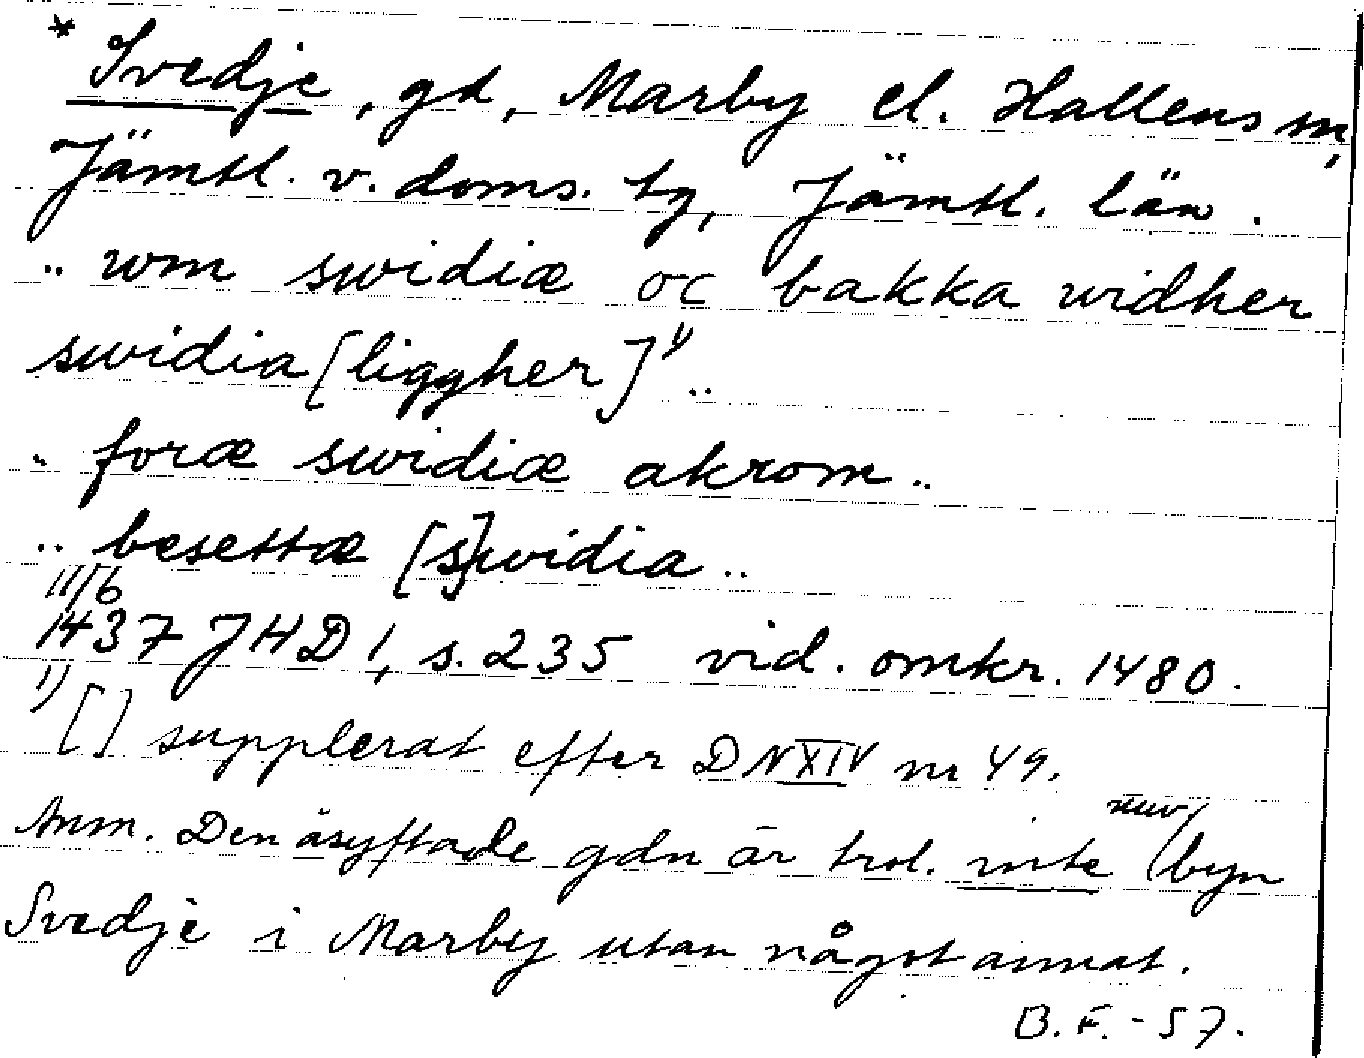 * Svedje, gd, Marby el. Hallens sn,
Jämtl. v. doms. tg, Jämtl. län.
.. wm swidiæ oc bakka widher
swidia [liggher]¹⁾ ..
.. foræ swidiæ akrom ..
.. besettæ [s]widia ..
11/6
1437 JHD 1, s. 235 vid. omkr. 1480.
¹⁾ [] supplerat efter DN XIV nr 49.
Anm. Den åsyftade gdn är trol. inte nuv. byn
Svedje i Marby utan något annat.
B.F. - 57.